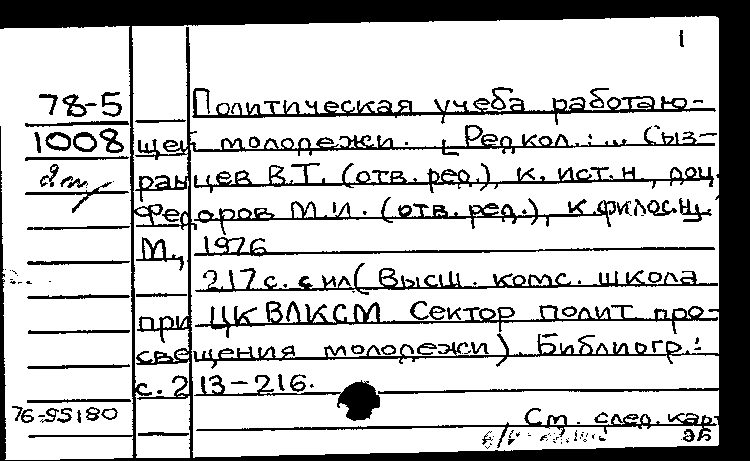 1
78-5 Политическая учеба работаю-
1008 щей молодежи. [Редкол.: ... Сыз-
ранцев В.Т. (отв. ред.), к. ист. н., доц.
Федоров М.И. (отв. ред.), к. филос. н.
М., 1976
217 с. с ил (Высш. комс. школа
при ЦК ВЛКСМ Сектор полит про-
свещения молодежи). Библиогр.:
с. 213-216.
76-55180
См. след. кар